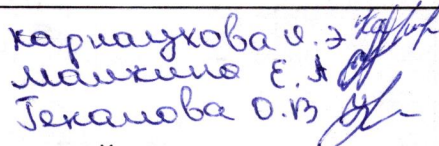 Карнаухова И. Э
Малкина Е. А
Гекалова О. В